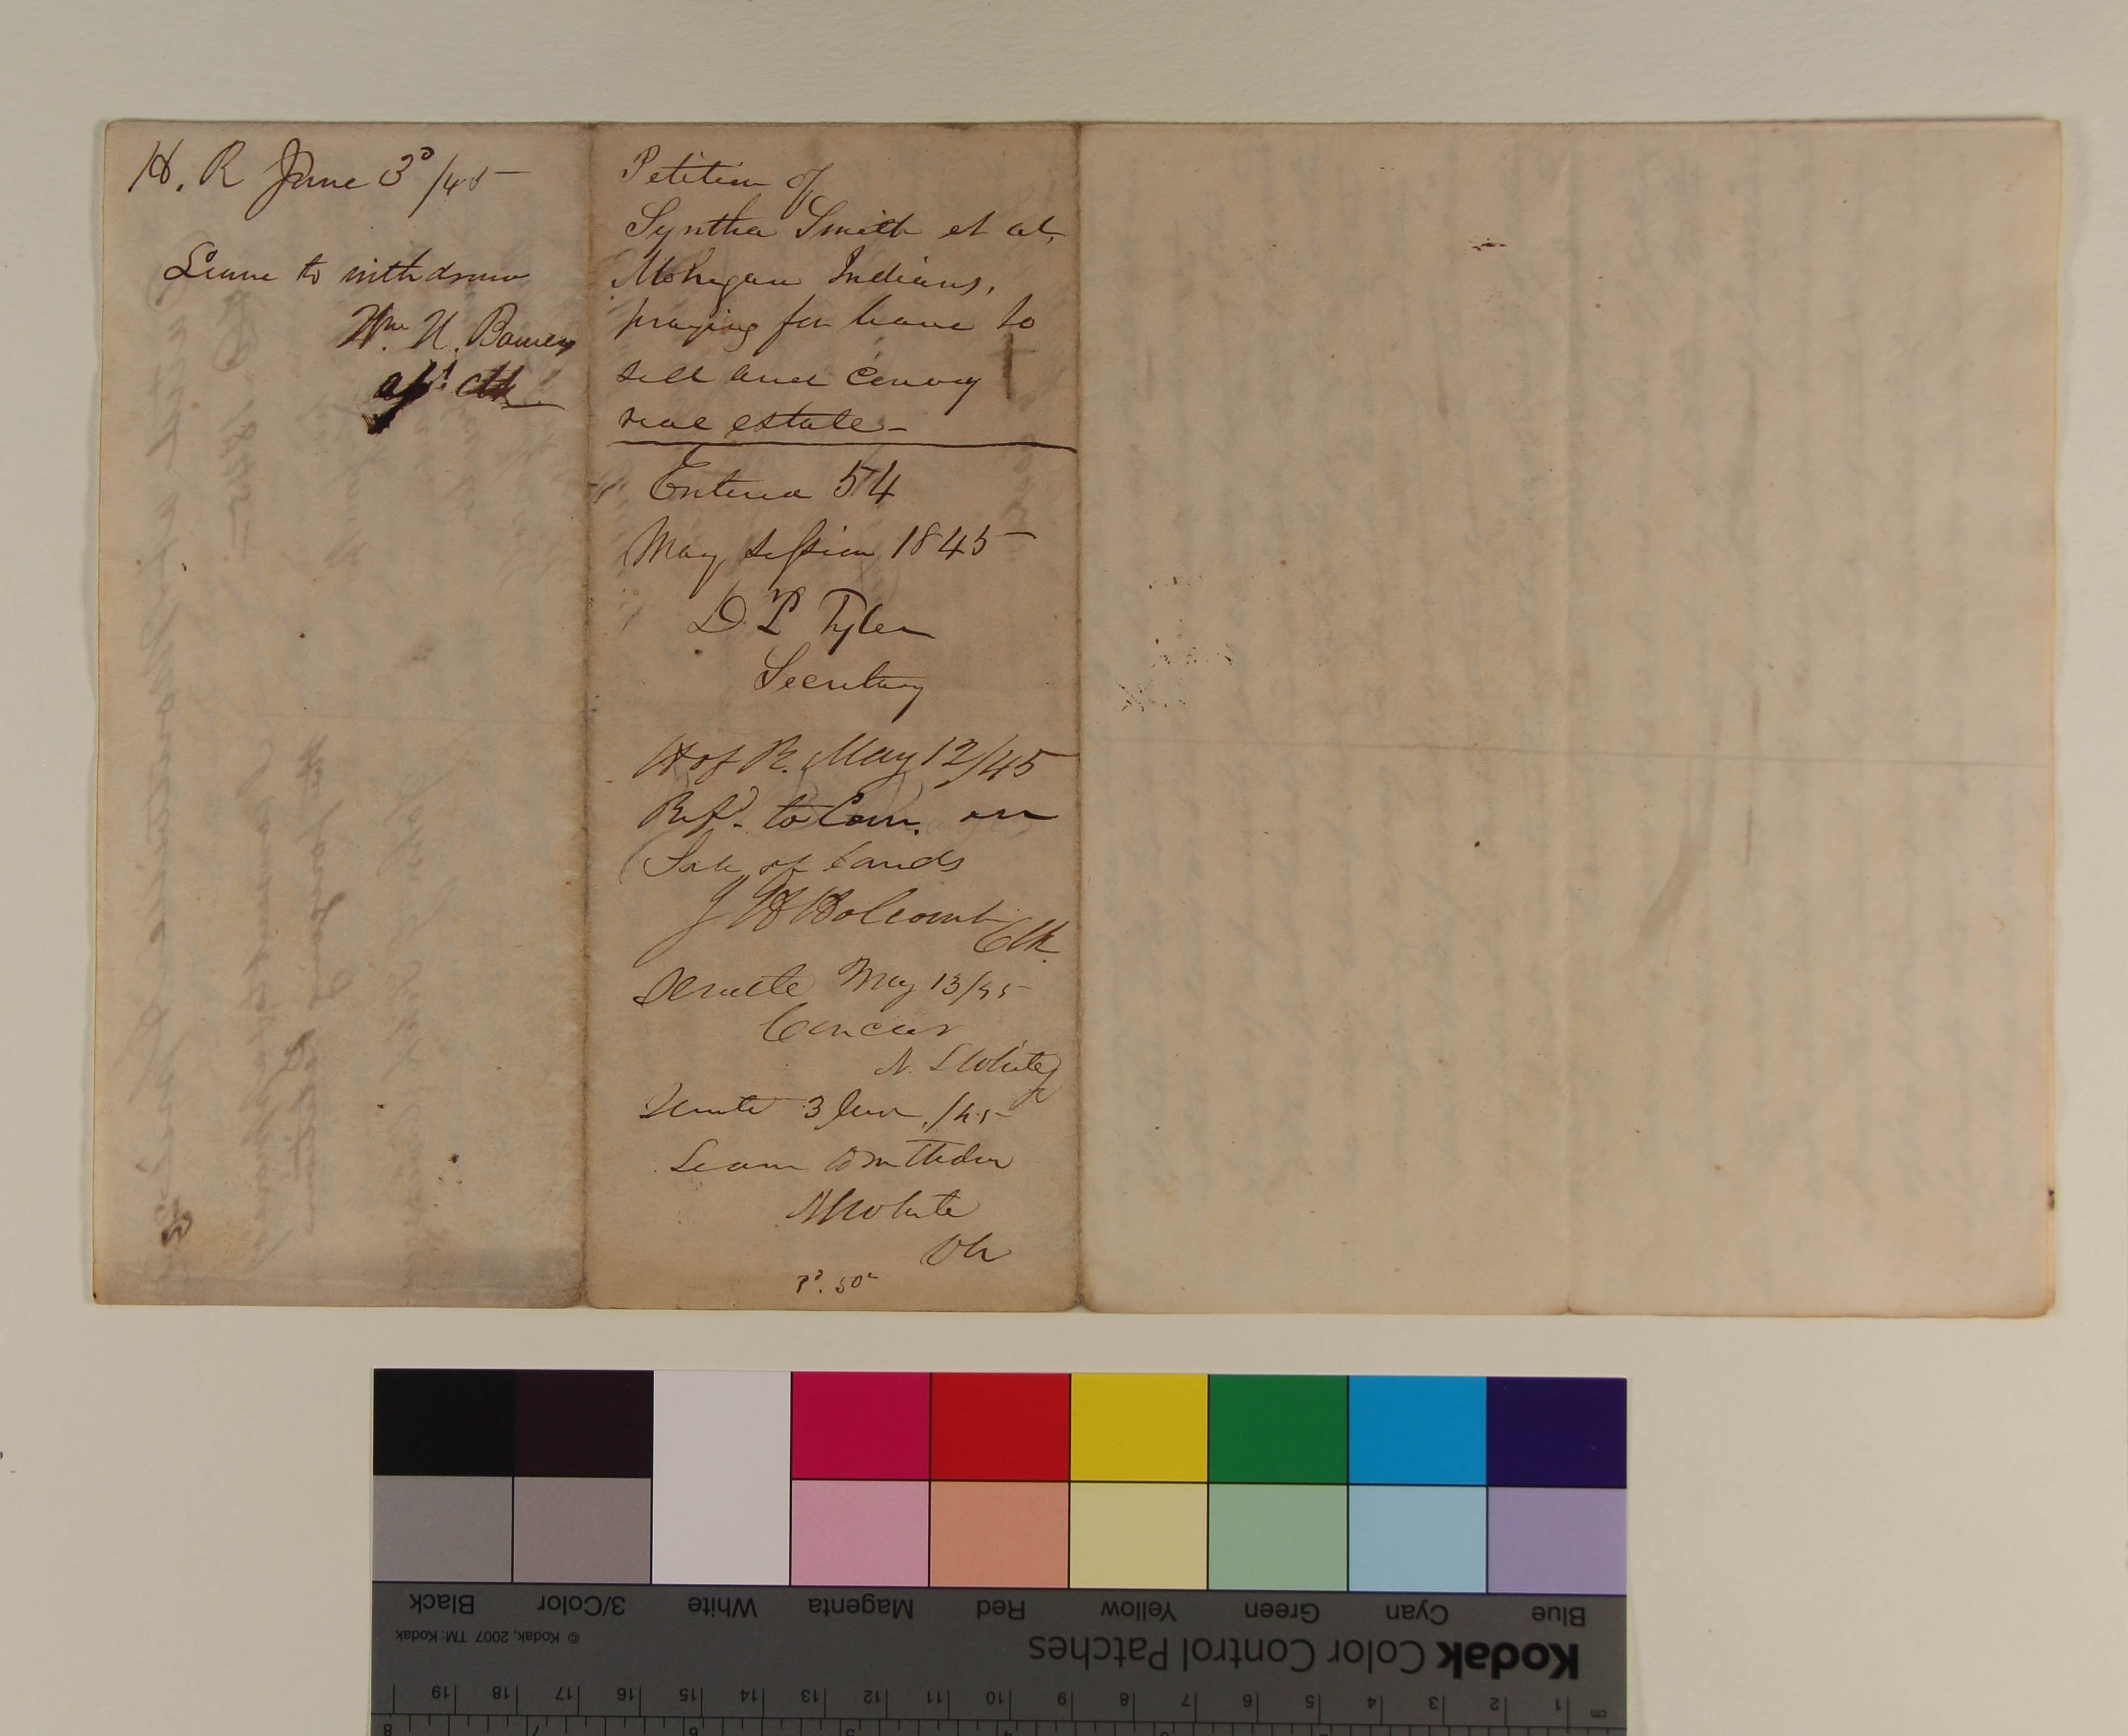 H. R June 3d /45
Leave to withdraw
Wm N.
asst Clk
Petition of
Syntha Smith et al,
Mohegan Indians,
praying for leave to
sell and convey
real estate -
Entered 54
May Session 1845
D P Tyler
Secretary
H of R. May 12/45
Refd. to Com. on
Sale of Lands
J H Holcomb
Clk
Senate May 13/45
Concur
N. S White
Senate 3 June /45
Leave to withdraw
White
Clk
Pd. 50c
Black
3/Color
White
Magenta
Red
Yellow
Green
Cyan
Blue
© Kodak, 2007 TM: Kodak
Kodak Color Control Patches
19 18 17 16 15 14 13 12 11 10 9 8 7 6 5 4 3 2 1 cm
8 7 6 5 4 3 2 1